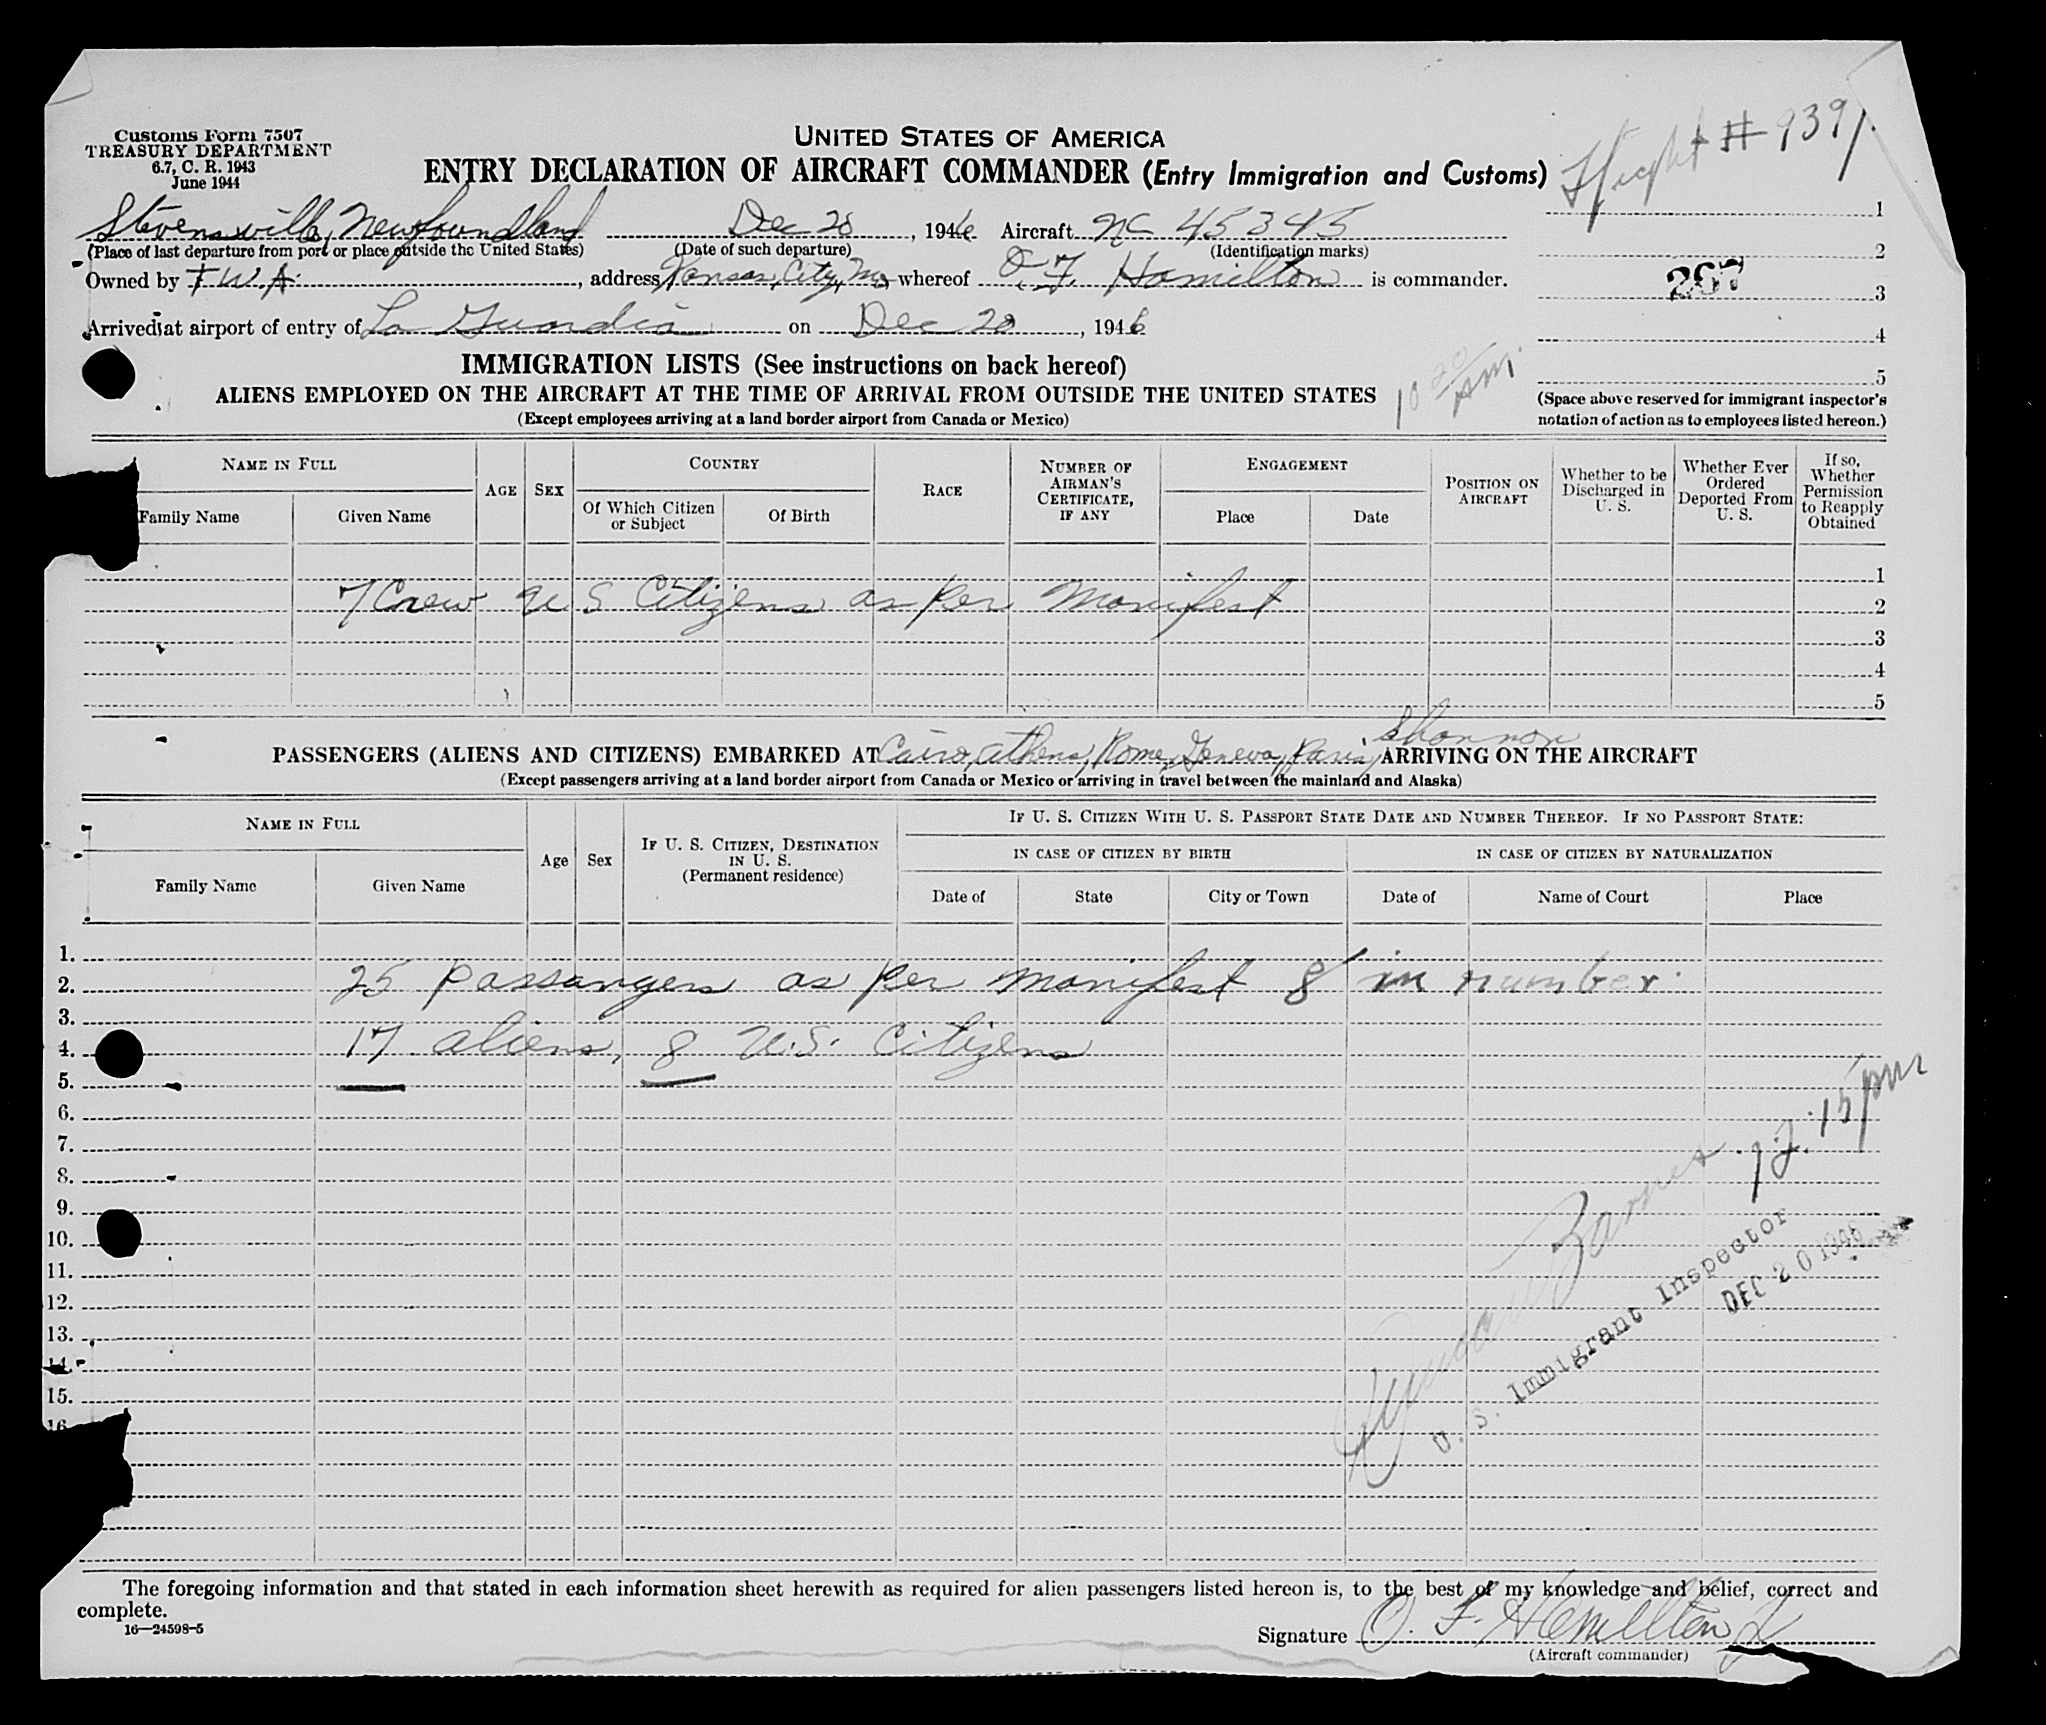 Customs Form 7507
TREASURY DEPARTMENT
6.7, C. R. 1943
June 1944
UNITED STATES OF AMERICA
ENTRY DECLARATION OF AIRCRAFT COMMANDER (Entry Immigration and Customs)
Flight # 9391.
Stevensville, Newfoundland Dec 20, 1946 Aircraft NC 45345
(Place of last departure from port or place outside the United States) (Date of such departure) (Identification marks)
Owned by T.W.A., address Kansas City, Mo whereof O. F. Hamilton is commander.
Arrived at airport of entry of La Guardia on Dec 20, 1946
1
2
267
3
4
5
(Space above reserved for immigrant inspector's
notation of action as to employees listed hereon.)
10 20 AM.
IMMIGRATION LISTS (See instructions on back hereof)
ALIENS EMPLOYED ON THE AIRCRAFT AT THE TIME OF ARRIVAL FROM OUTSIDE THE UNITED STATES
(Except employees arriving at a land border airport from Canada or Mexico)
NAME IN FULL
Family Name
Given Name
AGE
SEX
COUNTRY
Of Which Citizen or Subject
Of Birth
RACE
NUMBER OF AIRMAN'S CERTIFICATE, IF ANY
ENGAGEMENT
Place
Date
POSITION ON AIRCRAFT
Whether to be Discharged in U. S.
Whether Ever Ordered Deported From U. S.
If so, Whether Permission to Reapply Obtained
1
7 Crew U S Citizens as per Manifest 2
3
4
5
PASSENGERS (ALIENS AND CITIZENS) EMBARKED AT Cairo, Athens, Rome, Geneva, Paris, Shannon ARRIVING ON THE AIRCRAFT
(Except passengers arriving at a land border airport from Canada or Mexico or arriving in travel between the mainland and Alaska)
NAME IN FULL
Family Name
Given Name
Age
Sex
IF U. S. CITIZEN, DESTINATION IN U. S.
(Permanent residence)
IF U. S. CITIZEN WITH U. S. PASSPORT STATE DATE AND NUMBER THEREOF. IF NO PASSPORT STATE:
IN CASE OF CITIZEN BY BIRTH
Date of
State
City or Town
IN CASE OF CITIZEN BY NATURALIZATION
Date of
Name of Court
Place
1.
2. 25 passangers as per manifest 8 in number.
3.
4. 17 aliens, 8 U.S. Citizens
5.
6.
7.
8.
9.
10.
11.
12.
13.
14.
15.
16
15 pm
U. S. Immigrant Inspector
DEC 20 1946
The foregoing information and that stated in each information sheet herewith as required for alien passengers listed hereon is, to the best of my knowledge and belief, correct and
complete.
16—24598-5
Signature O. F. Hamilton Jr
(Aircraft commander)